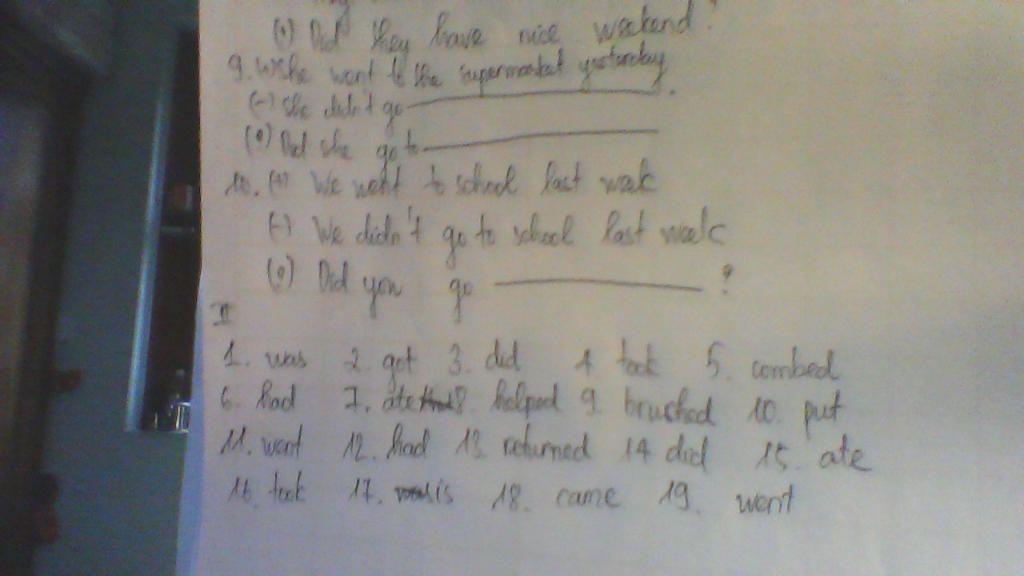 (?) Did they have nice weekend?
9. She went to the supermarket yesterday
(-) She didn't go .
(?) Did she go to
10. (+) We went to school last week
(-) We didn't go to school last week
(?) Did you go ?
II
1. was 2. got 3. did 4. took 5. combed
6. had 7. ate 8. helped 9. brushed 10. put
11. went 12. had 13. returned 14 did 15. ate
16. took 17. is 18. came 19. went